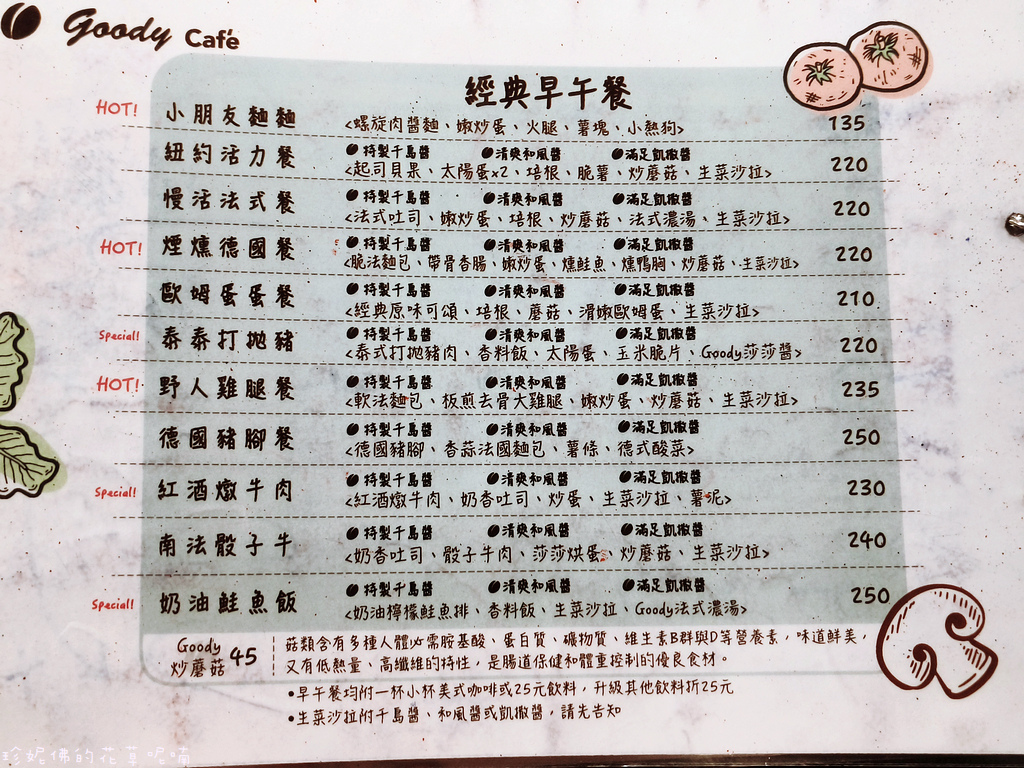 Goody Café
經典早午餐
HOT! 小朋友麵麵 <螺旋肉醬麵、嫩炒蛋、火腿、薯塊、小熱狗> 135
特製千島醬 清爽和風醬 滿足凱撒醬
紐約活力餐 <起司貝果、太陽蛋x2、培根、脆薯、炒蘑菇、生菜沙拉> 220
特製千島醬 清爽和風醬 滿足凱撒醬
慢活法式餐 <法式吐司、嫩炒蛋、培根、炒蘑菇、法式濃湯、生菜沙拉> 220
特製千島醬 清爽和風醬 滿足凱撒醬
HOT! 煙燻德國餐 <脆法麵包、帶骨香腸、嫩炒蛋、燻鮭魚、燻鴨胸、炒蘑菇、生菜沙拉> 220
特製千島醬 清爽和風醬 滿足凱撒醬
歐姆蛋蛋餐 <經典原味可頌、培根、蘑菇、滑嫩歐姆蛋、生菜沙拉> 210
特製千島醬 清爽和風醬 滿足凱撒醬
Special! 泰泰打拋豬 <泰式打拋豬肉、香料飯、太陽蛋、玉米脆片、Goody莎莎醬> 220
特製千島醬 清爽和風醬 滿足凱撒醬
HOT! 野人雞腿餐 <軟法麵包、板煎去骨大雞腿、嫩炒蛋、炒蘑菇、生菜沙拉> 235
特製千島醬 清爽和風醬 滿足凱撒醬
德國豬腳餐 <德國豬腳、香蒜法國麵包、薯條、德式酸菜> 250
特製千島醬 清爽和風醬 滿足凱撒醬
Special! 紅酒燉牛肉 <紅酒燉牛肉、奶香吐司、炒蛋、生菜沙拉、薯泥> 230
特製千島醬 清爽和風醬 滿足凱撒醬
南法骰子牛 <奶香吐司、骰子牛肉、莎莎烘蛋、炒蘑菇、生菜沙拉> 240
特製千島醬 清爽和風醬 滿足凱撒醬
Special! 奶油鮭魚飯 <奶油檸檬鮭魚排、香料飯、生菜沙拉、Goody法式濃湯> 250
Goody 炒蘑菇 45
菇類含有多種人體必需胺基酸、蛋白質、礦物質、維生素B群與D等營養素，味道鮮美，
又有低熱量、高纖維的特性，是腸道保健和體重控制的優良食材。
•早午餐均附一杯小杯美式咖啡或25元飲料，升級其他飲料折25元
•生菜沙拉附千島醬、和風醬或凱撒醬，請先告知
珍妮佛的花草呢喃